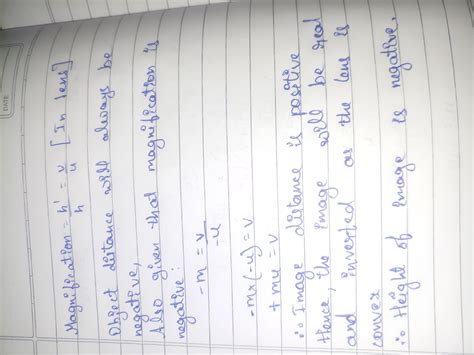 DATE
Magnification = h'/h = v/u [In lens]
Object distance will always be
negative,
Also given that magnification is
negative:
-m = v/-u
-m x (-u) = v
+mu = v
∴ Image distance is positive
Hence, the image will be real
and inverted as the lens is
convex
∴ Height of image is negative.